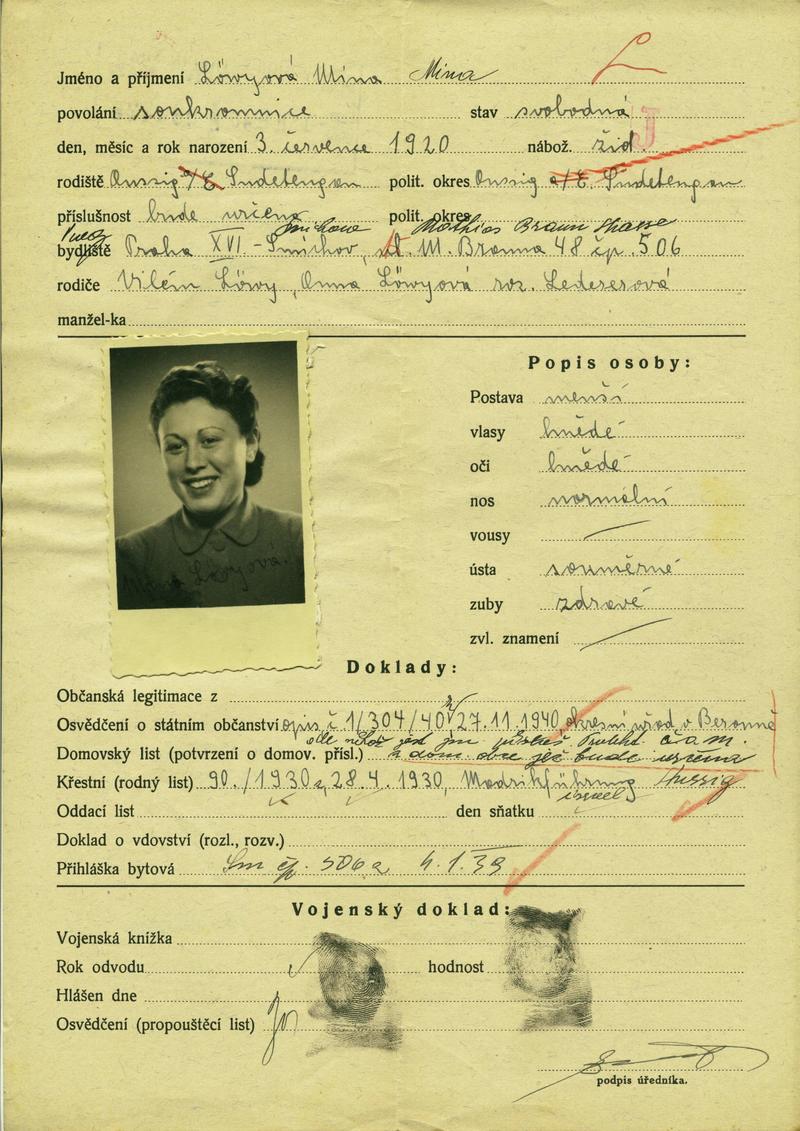 L
Jméno a příjmení Löwyová Mina Mina
povolání soukromnice stav svobodná J
den, měsíc a rok narození 3. července 1920 nábož. žid.
rodiště Aussig a/E. Sudetengau polit. okres Aussig a/E. Sudetengau
příslušnost bude určena polit. okres
Smichow Mathias Braun Strasse
bydliště Praha XVI - Smíchov, M. Brauna 48 čp. 506
rodiče Vilém Löwy, Anna Löwyová roz. Ledererová
manžel-ka
Popis osoby:
Postava menší
vlasy hnědé
oči hnědé
nos normální
vousy
ústa souměrné
zuby zdravé
zvl. znamení
Mina Löwyová.
Doklady:
Občanská legitimace z
Osvědčení o státním občanství opis č. 1/304/40 27.11.1940, okresní úřad v Berouně
Domovský list (potvrzení o domov. přísl.) bude určena
Křestní (rodný list) 90./1930 z 28.4.1930, Matrikführung Aussig
israel.
Oddací list den sňatku
Doklad o vdovství (rozl., rozv.)
Přihláška bytová Sm čp. 506 z 4.1.39
Vojenský doklad:
Vojenská knížka
Rok odvodu hodnost
Hlášen dne
Osvědčení (propouštěcí list)
podpis úředníka.